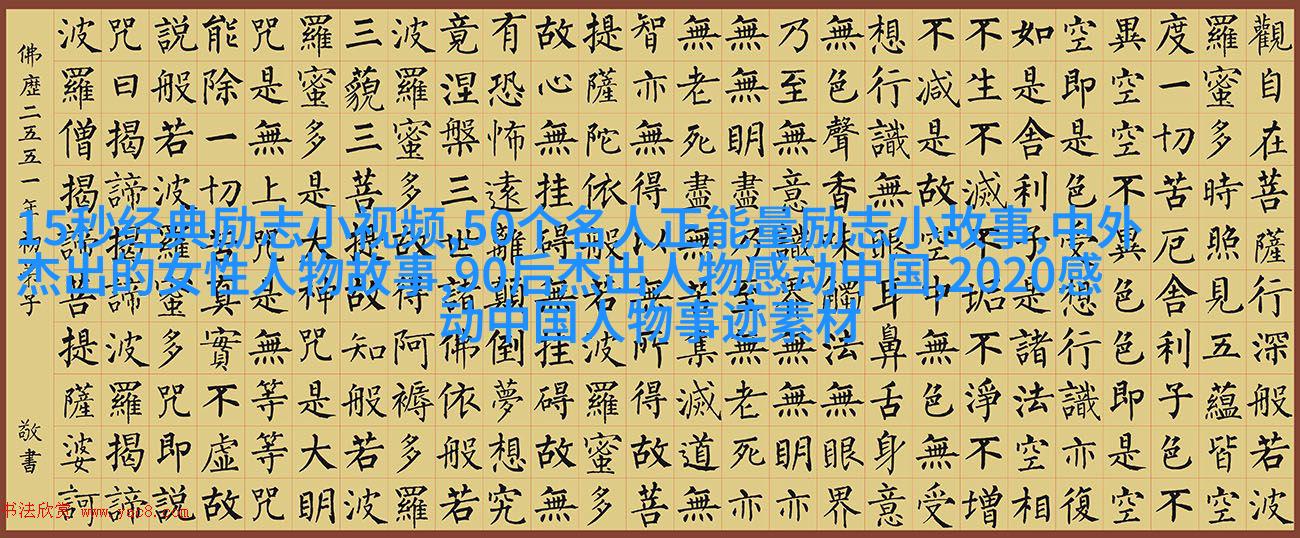 觀自在菩薩行深般若波
羅蜜多時照見五蘊皆空
度一切苦厄舍利子色不
異空空不異色色即是空
空即是色受想行識亦復
如是舍利子是諸法空相
不生不滅不垢不淨不增
不減是故空中無色無受
想行識無眼耳鼻舌身意
無色聲香味觸法無眼界
乃至無意識界無無明亦
無無明盡乃至無老死亦
無老死盡無苦集滅道無
智亦無得以無所得故菩
提薩陀依般若波羅蜜多
故心無挂碍無挂碍故無
有恐怖遠離顛倒夢想究
竟涅槃三世諸佛依般若
波羅蜜多故得阿褥多羅
三藐三菩提故知般若波
羅蜜多是大神咒是大明
咒是無上咒是無等等咒
能除一切苦真實不虛故
說般若波羅蜜多咒即說
咒曰揭諦揭諦波羅揭諦
波羅僧揭諦菩提薩婆訶
佛歷二五五一年弟子
敬書
15秒经典励志小视频,50个名人正能量励志小故事,中外
杰出的女性人物故事,90后杰出人物感动中国,2020感
动中国人物事迹素材
书法欣赏 www.yac8.com